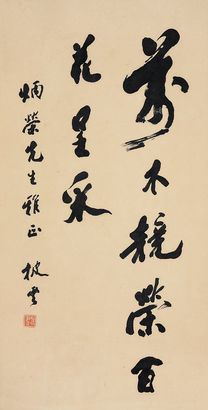 萬木競榮百
花呈采
炳榮先生雅正 披雲